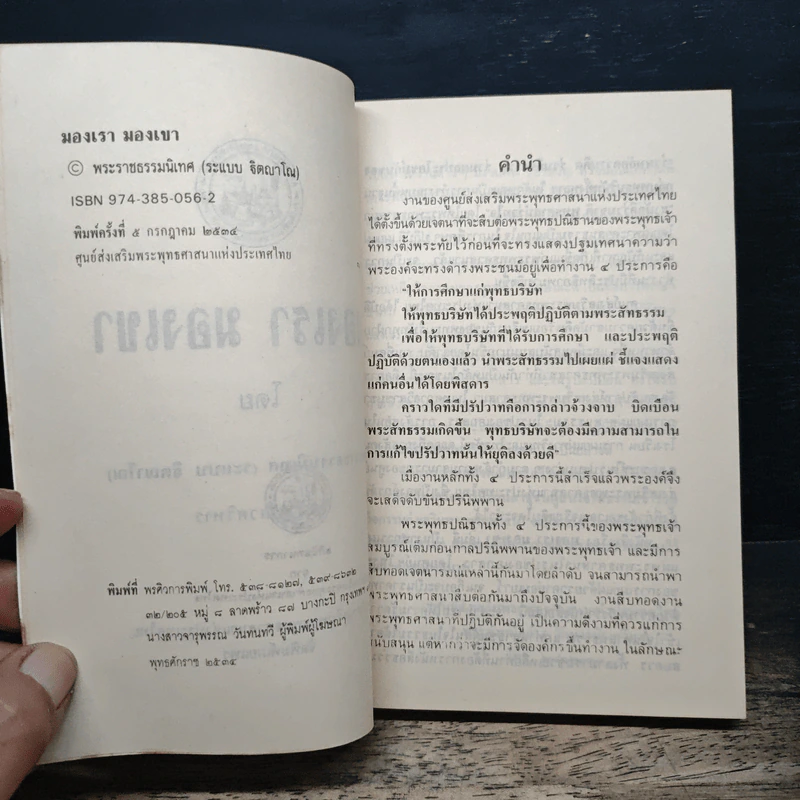 มองเรา มองเขา
© พระราชธรรมนิเทศ (ระแบบ ฐิตญาโณ)
ISBN 974-385-056-2
พิมพ์ครั้งที่ ๕ กรกฎาคม ๒๕๓๔
ศูนย์ส่งเสริมพระพุทธศาสนาแห่งประเทศไทย
พิมพ์ที่ พรศิวการพิมพ์ โทร. ๕๓๘-๘๑๒๗, ๕๓๙-๘๖๓๒
๓๒/๒๐๕ หมู่ ๘ ลาดพร้าว ๘๗ บางกะปิ กรุงเทพฯ
นางสาวจารุพรรณ วันทนทวี ผู้พิมพ์ผู้โฆษณา
พุทธศักราช ๒๕๓๔
คำนำ
งานของศูนย์ส่งเสริมพระพุทธศาสนาแห่งประเทศไทย
ได้ตั้งขึ้นด้วยเจตนาที่จะสืบต่อพระพุทธปณิธานของพระพุทธเจ้า
ที่ทรงตั้งพระทัยไว้ก่อนที่จะทรงแสดงปฐมเทศนาความว่า
พระองค์จะทรงดำรงพระชนม์อยู่เพื่อทำงาน ๔ ประการคือ
"ให้การศึกษาแก่พุทธบริษัท
ให้พุทธบริษัทได้ประพฤติปฏิบัติตามพระสัทธรรม
เพื่อให้พุทธบริษัทที่ได้รับการศึกษา และประพฤติ
ปฏิบัติด้วยตนเองแล้ว นำพระสัทธรรมไปเผยแผ่ ชี้แจงแสดง
แก่คนอื่นได้โดยพิสดาร
คราวใดที่มีปรัปวาทคือการกล่าวจ้วงจาบ บิดเบือน
พระสัทธรรมเกิดขึ้น พุทธบริษัทจะต้องมีความสามารถใน
การแก้ไขปรัปวาทนั้นให้ยุติลงด้วยดี"
เมื่องานหลักทั้ง ๔ ประการนี้สำเร็จแล้วพระองค์จึง
จะเสด็จดับขันธปรินิพพาน
พระพุทธปณิธานทั้ง ๔ ประการนี้ของพระพุทธเจ้า
สมบูรณ์เต็มก่อนกาลปรินิพพานของพระพุทธเจ้า และมีการ
สืบทอดเจตนารมณ์เหล่านี้กันมาโดยลำดับ จนสามารถนำพา
พระพุทธศาสนาสืบต่อกันมาถึงปัจจุบัน งานสืบทอดงาน
พระพุทธศาสนาที่ปฏิบัติกันอยู่ เป็นความดีงามที่ควรแก่การ
สนับสนุน แต่หากว่าจะมีการจัดองค์กรขึ้นทำงาน ในลักษณะ